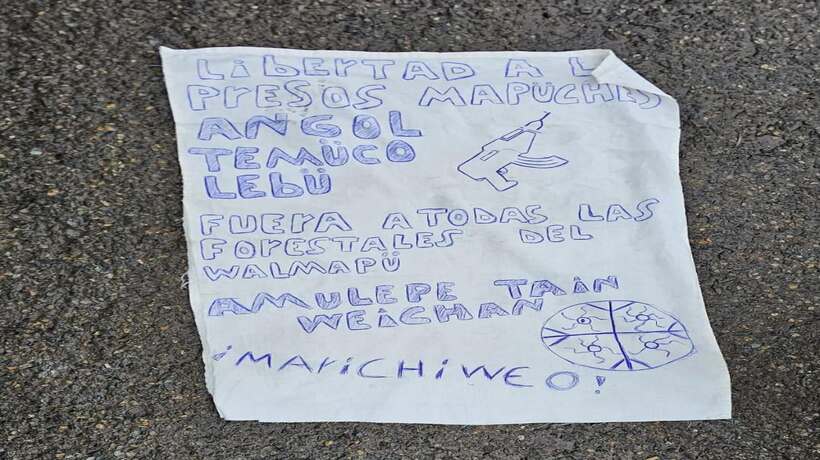 LIBERTAD A L
PRESOS MAPÜCHES
ANGOL
TEMÜCO
LEBÜ
FUERA A TODAS LAS
FORESTALES DEL
WALMAPÜ
AMULEPE TAIN
WEICHAN
¡MARICHIWEO!